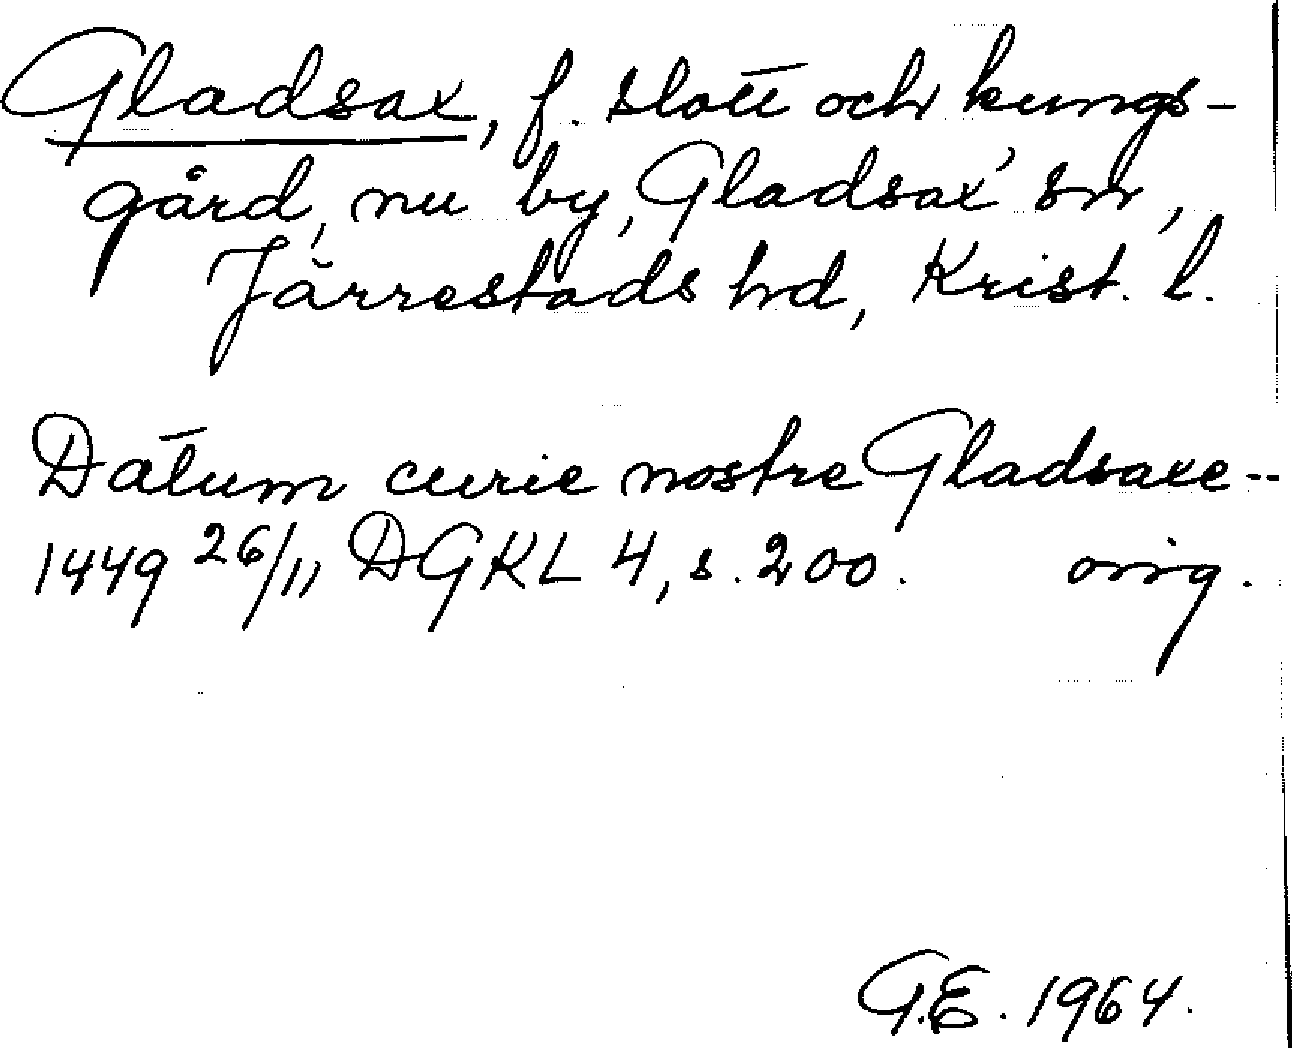 Gladsax, f. slott och kungs-
gård, nu by, Gladsax' sn,
Järrestads hd, Krist. l.
Datum curie nostre Gladsaxe--
1449 26/11 DGKL 4, s. 200. orig.
G.E. 1964.